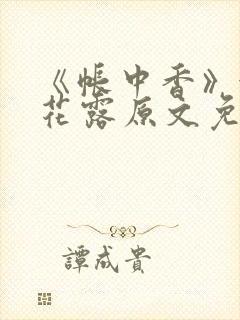 《帐中香》
花露原文免
譚成貴